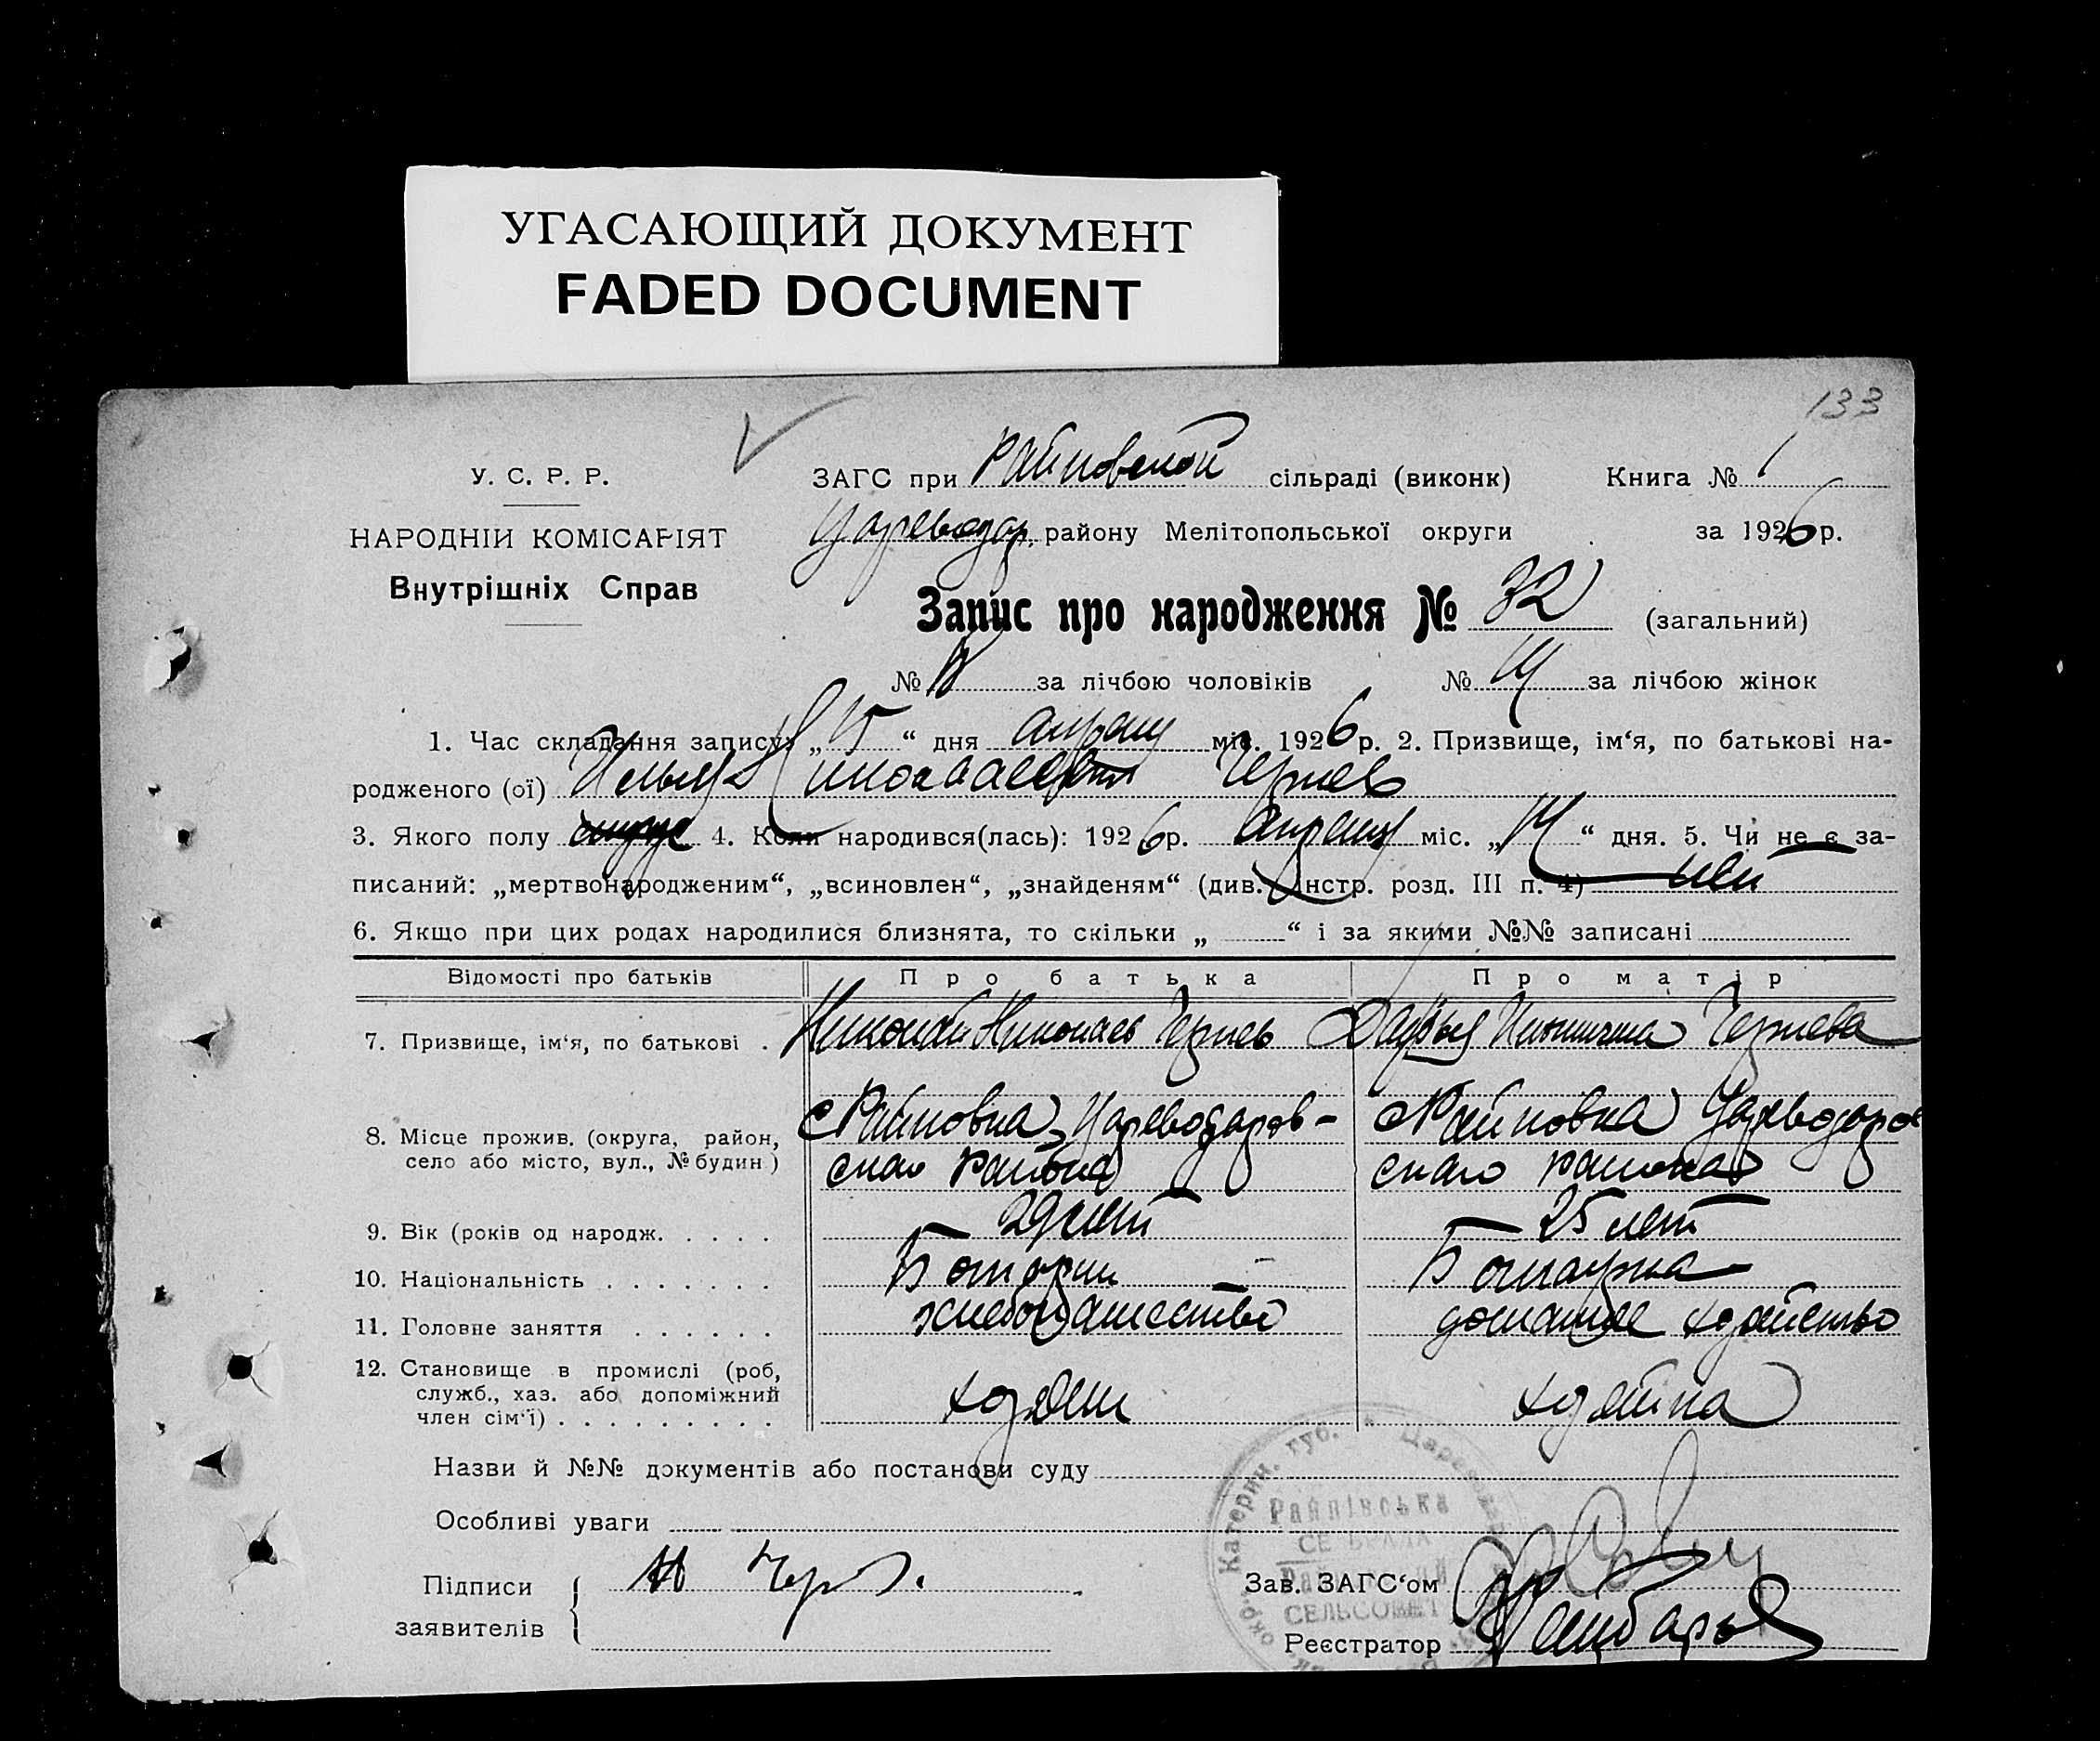 УГАСАЮЩИЙ ДОКУМЕНТ
FADED DOCUMENT
133
У. С. Р. Р.
НАРОДНІЙ КОМІСАРІЯТ
Внутрішніх Справ
ЗАГС при Райновской сільраді (виконк) Книга № 1
Цареводар. району Мелітопольської округи за 1926 р.
Запис про народження № 32 (загальний)
№ за лічбою чоловіків № за лічбою жінок
1. Час складення запису: „15“ дня апреля міс. 1926 р. 2. Призвище, ім‘я, по батькові на-
родженого (ої) Николаев Чернев
3. Якого полу 4. Коли народився(лась): 1926 р. апреля міс. „14“ дня. 5. Чи не є за-
писаний: „мертвонародженим“, „всиновлен“, „знайденям“ (див. Інстр. розд. III п. 4)
6. Якщо при цих родах народилися близнята, то скільки „ “ і за якими №№ записані
Відомості про батьків Про батька Про матір
7. Призвище, ім‘я, по батькові . Николай Николаев Чернев Дарья Чернева
8. Місце прожив. (округа, район, село або місто, вул., № будин.) с Райновка, Цареводаров- с Райновка Цареводаров
скаго района скаго района
9. Вік (років од народж. . . . . 29 лет 25 лет
10. Національність . . . . . . . Болгарин Болгарка
11. Головне заняття . . . . . . хлебопашество домашнее хозяйство
12. Становище в промислі (роб,
служб., хаз. або допоміжний
член сім‘ї) . . . . . . . . . хозяин хозяйка
Назви й №№ документів або постанови суду
Особливі уваги
Підписи
заявителів
Зав. ЗАГС‘ом
Реєстратор
Катерин. губ.
Райнівська
СЕЛЬСОВЕТ